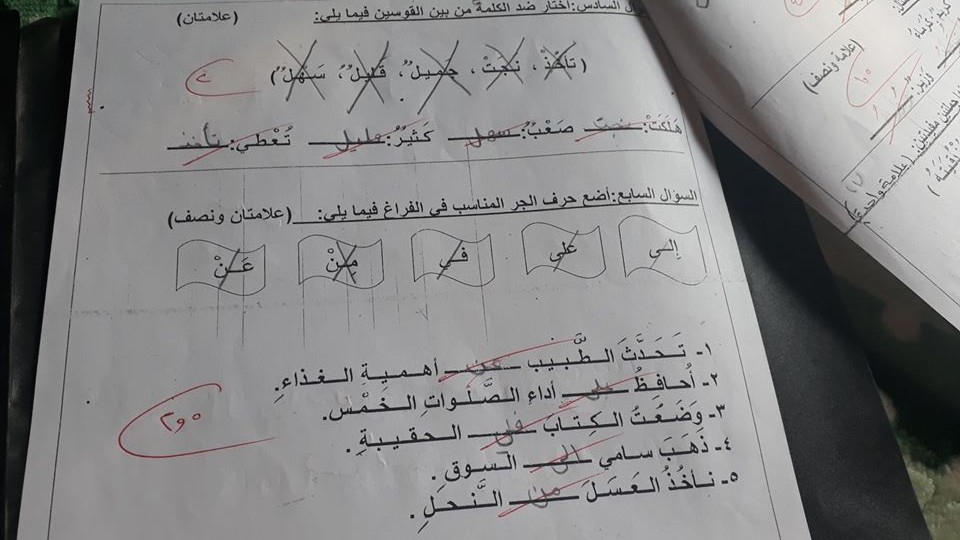 السادس: أختار ضد الكلمة من بين القوسين فيما يلي: (علامتان)
( تأخُذُ ، نَجَتْ ، جميلٌ ، قليلٌ ، سَهْلٌ )
٢
هَلَكَتْ: نجت صَعْبٌ: سهل كَثيرٌ: قليل تُعْطي: تأخذ
السؤال السابع: أضع حرف الجر المناسب في الفراغ فيما يلي: (علامتان ونصف)
إلى على في مِنْ عَنْ
١- تَحَدَّثَ الطَّبيب عن أهمية الغذاءِ.
٢- أُحافِظُ على أداء الصَّلَواتِ الخَمْس.
٣- وَضَعَتُ الكِتابَ في الحقيبةِ.
٤- ذَهَبَ سامي إلى السوق.
٥- نأخُذُ العَسَلَ من النَّحلِ.
٢و٥
(علامة ونصف)
(علامة واحدة)